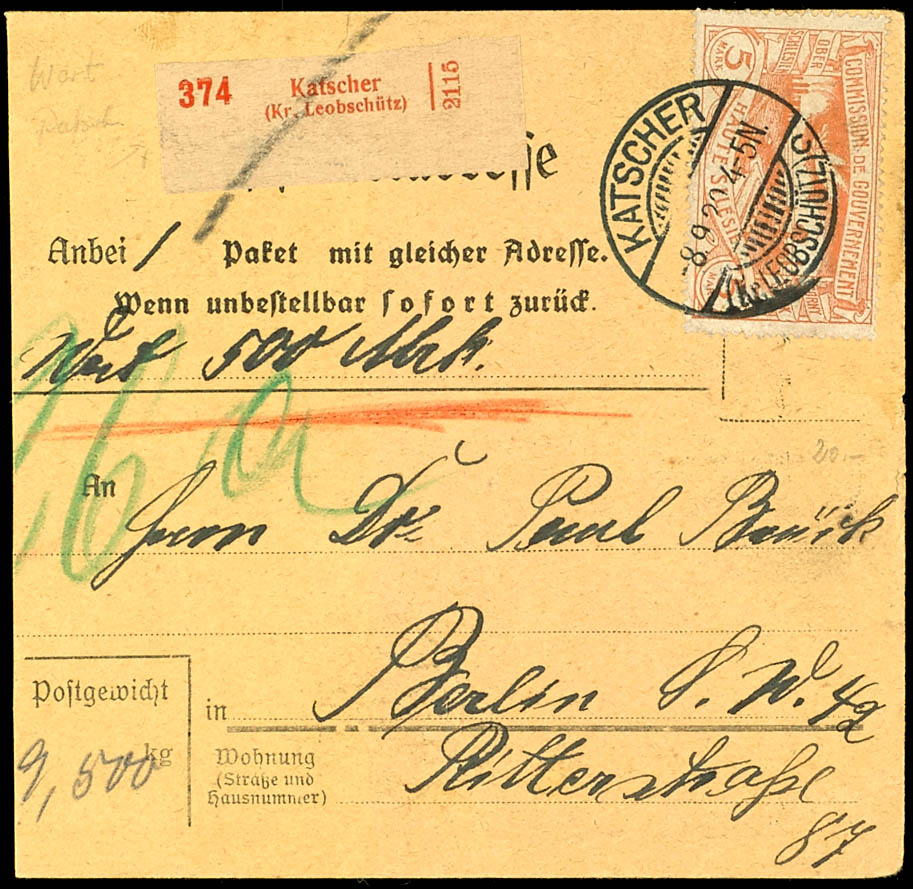 Wert
374 Katscher
(Kr. Leobschütz)
2115
Anbei / Paket mit gleicher Adresse.
Wenn unbestellbar sofort zurück.
Wert 500 Mrk.
KATSCHER
(Kr. LEOBSCHÜTZ)
-8.9.20. 4-5N.
5
MARK
OBER
SCHLESIEN
COMMISSION DE GOUVERNEMENT
HAUTE SILESIE
20.-
An Herrn Dr. Paul
Postgewicht
9,500 kg
in Berlin S. W. 42
Wohnung
(Straße und
Hausnummer)
Ritterstraße
87